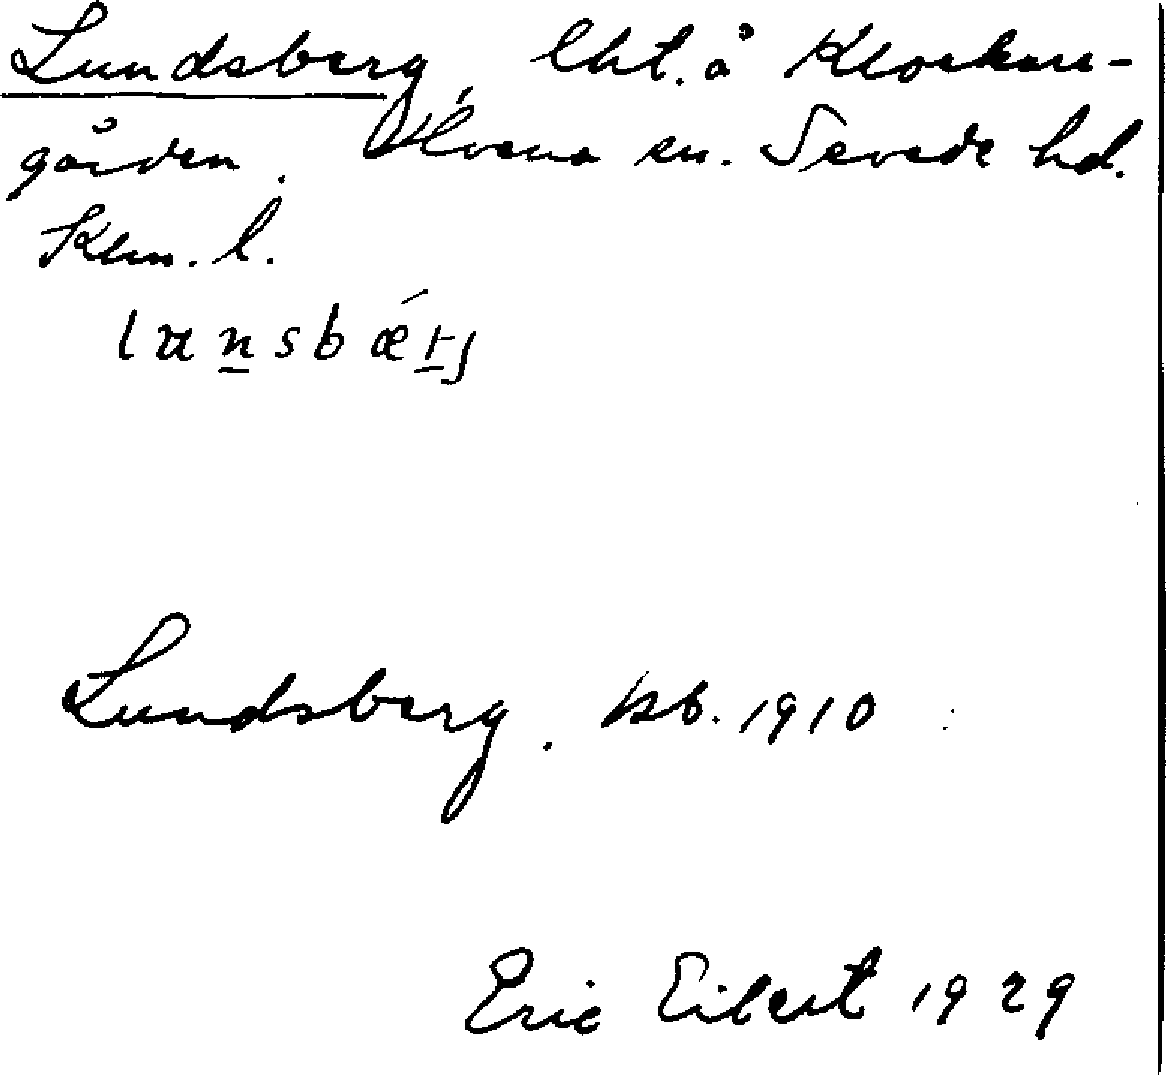 Lundsberg, lht. å Klockare-
gården. Älvena sn. Sevede hd.
Klm. l.
lunsbærj
Lundsberg. kb. 1910
Eric Eilert 1929